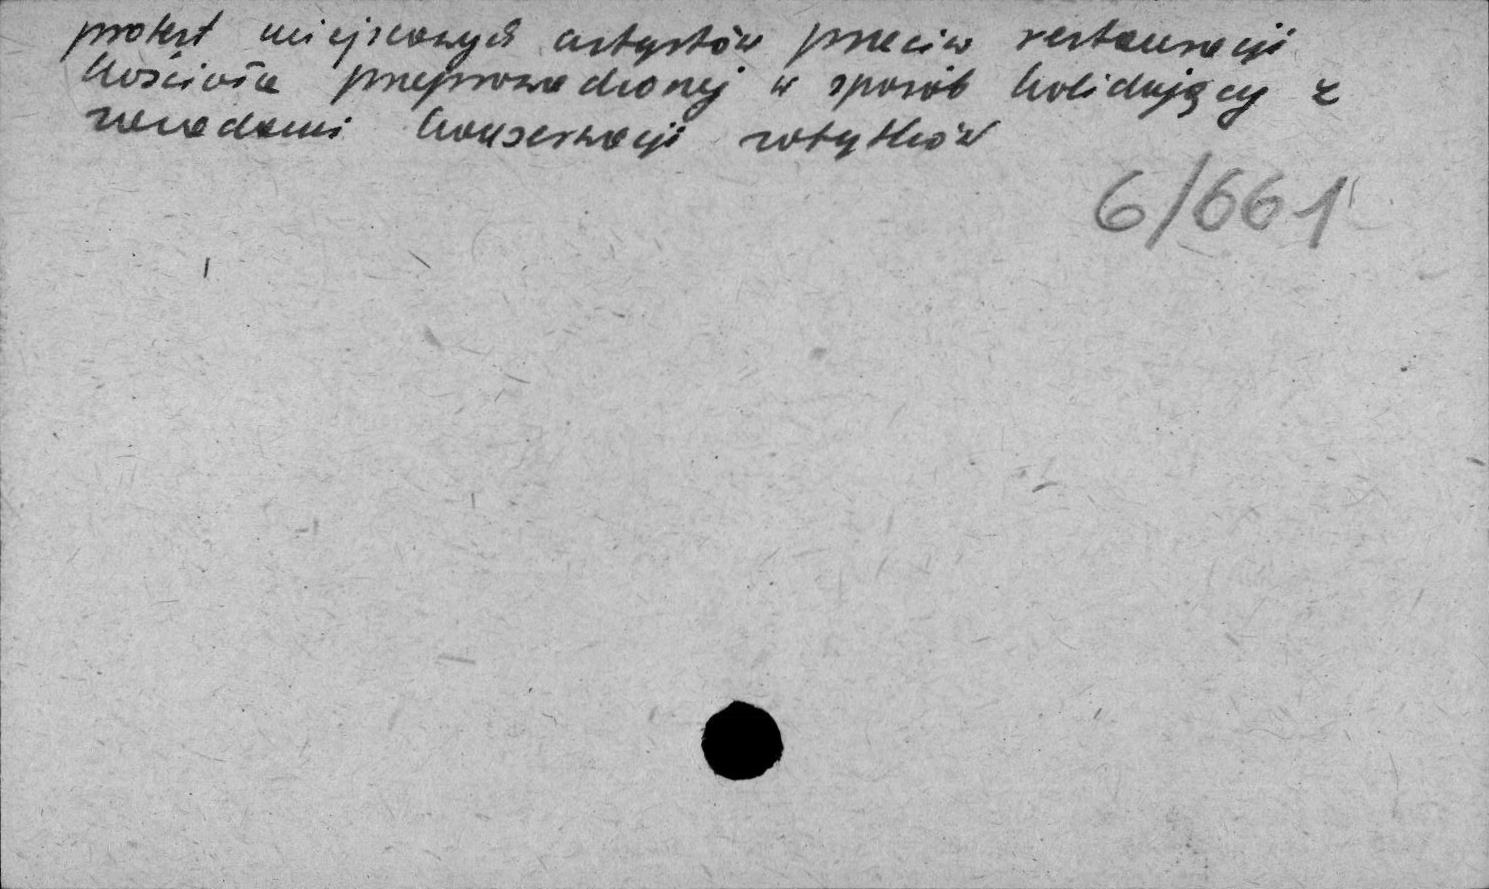 protest miejscowych artystów przeciw restauracji
kościoła przeprowadzonej w sposób kolidujący z
zasadami konserwacji zabytków
6/661